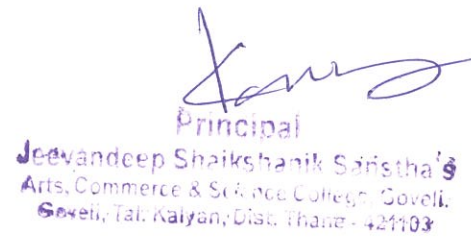 Principal
Jeevandeep Shaikshanik Sanstha's
Arts, Commerce & Science College, Goveli.
Goveli, Tal. Kalyan, Dist. Thane - 421103